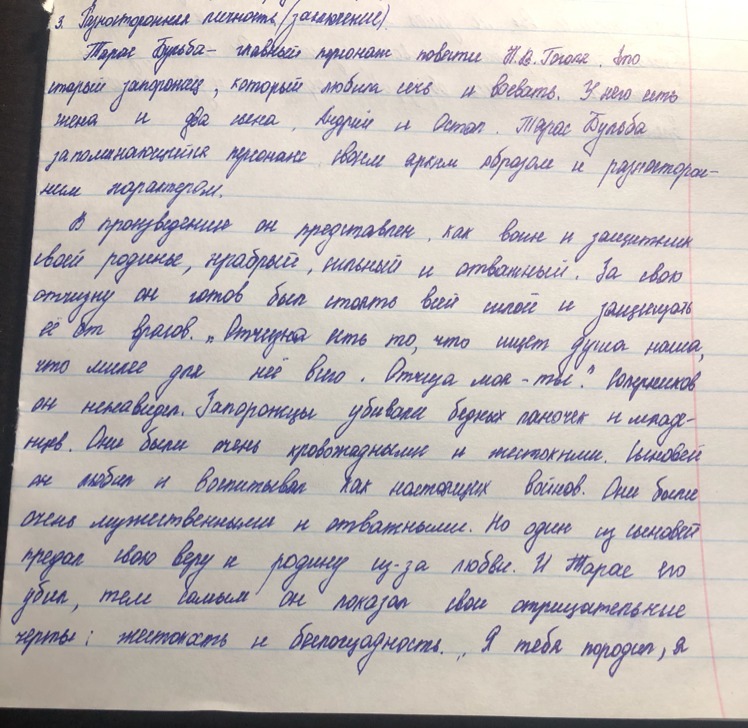 3. Разносторонняя личность (заключение).
Тарас Бульба - главный персонаж повести Н.В. Гоголя. Это
старый запорожец, который любил сечь и воевать. У него есть
жена и два сына, Андрий и Остап. Тарас Бульба
запоминающийся персонаж своим ярким образом и разносторон-
ним характером.
В произведении он представлен, как воин и защитник
своей родины, храбрый, сильный и отважный. За свою
отчизну он готов был стоять всей силой и защищать
её от врагов. „Отчизна есть то, что ищет душа наша,
что милее для неё всего. Отчизна моя - ты." Соперников
он ненавидел. Запорожцы убивали бедных паночек и младе-
нцев. Они были очень кровожадными и жестокими. Сыновей
он любил и воспитывал как настоящих войнов. Они были
очень мужественными и отважными. Но один из сыновей
предал свою веру и родину из-за любви. И Тарас его
убил, тем самым он показал свои отрицательные
черты: жестокость и беспощадность. „Я тебя породил, я